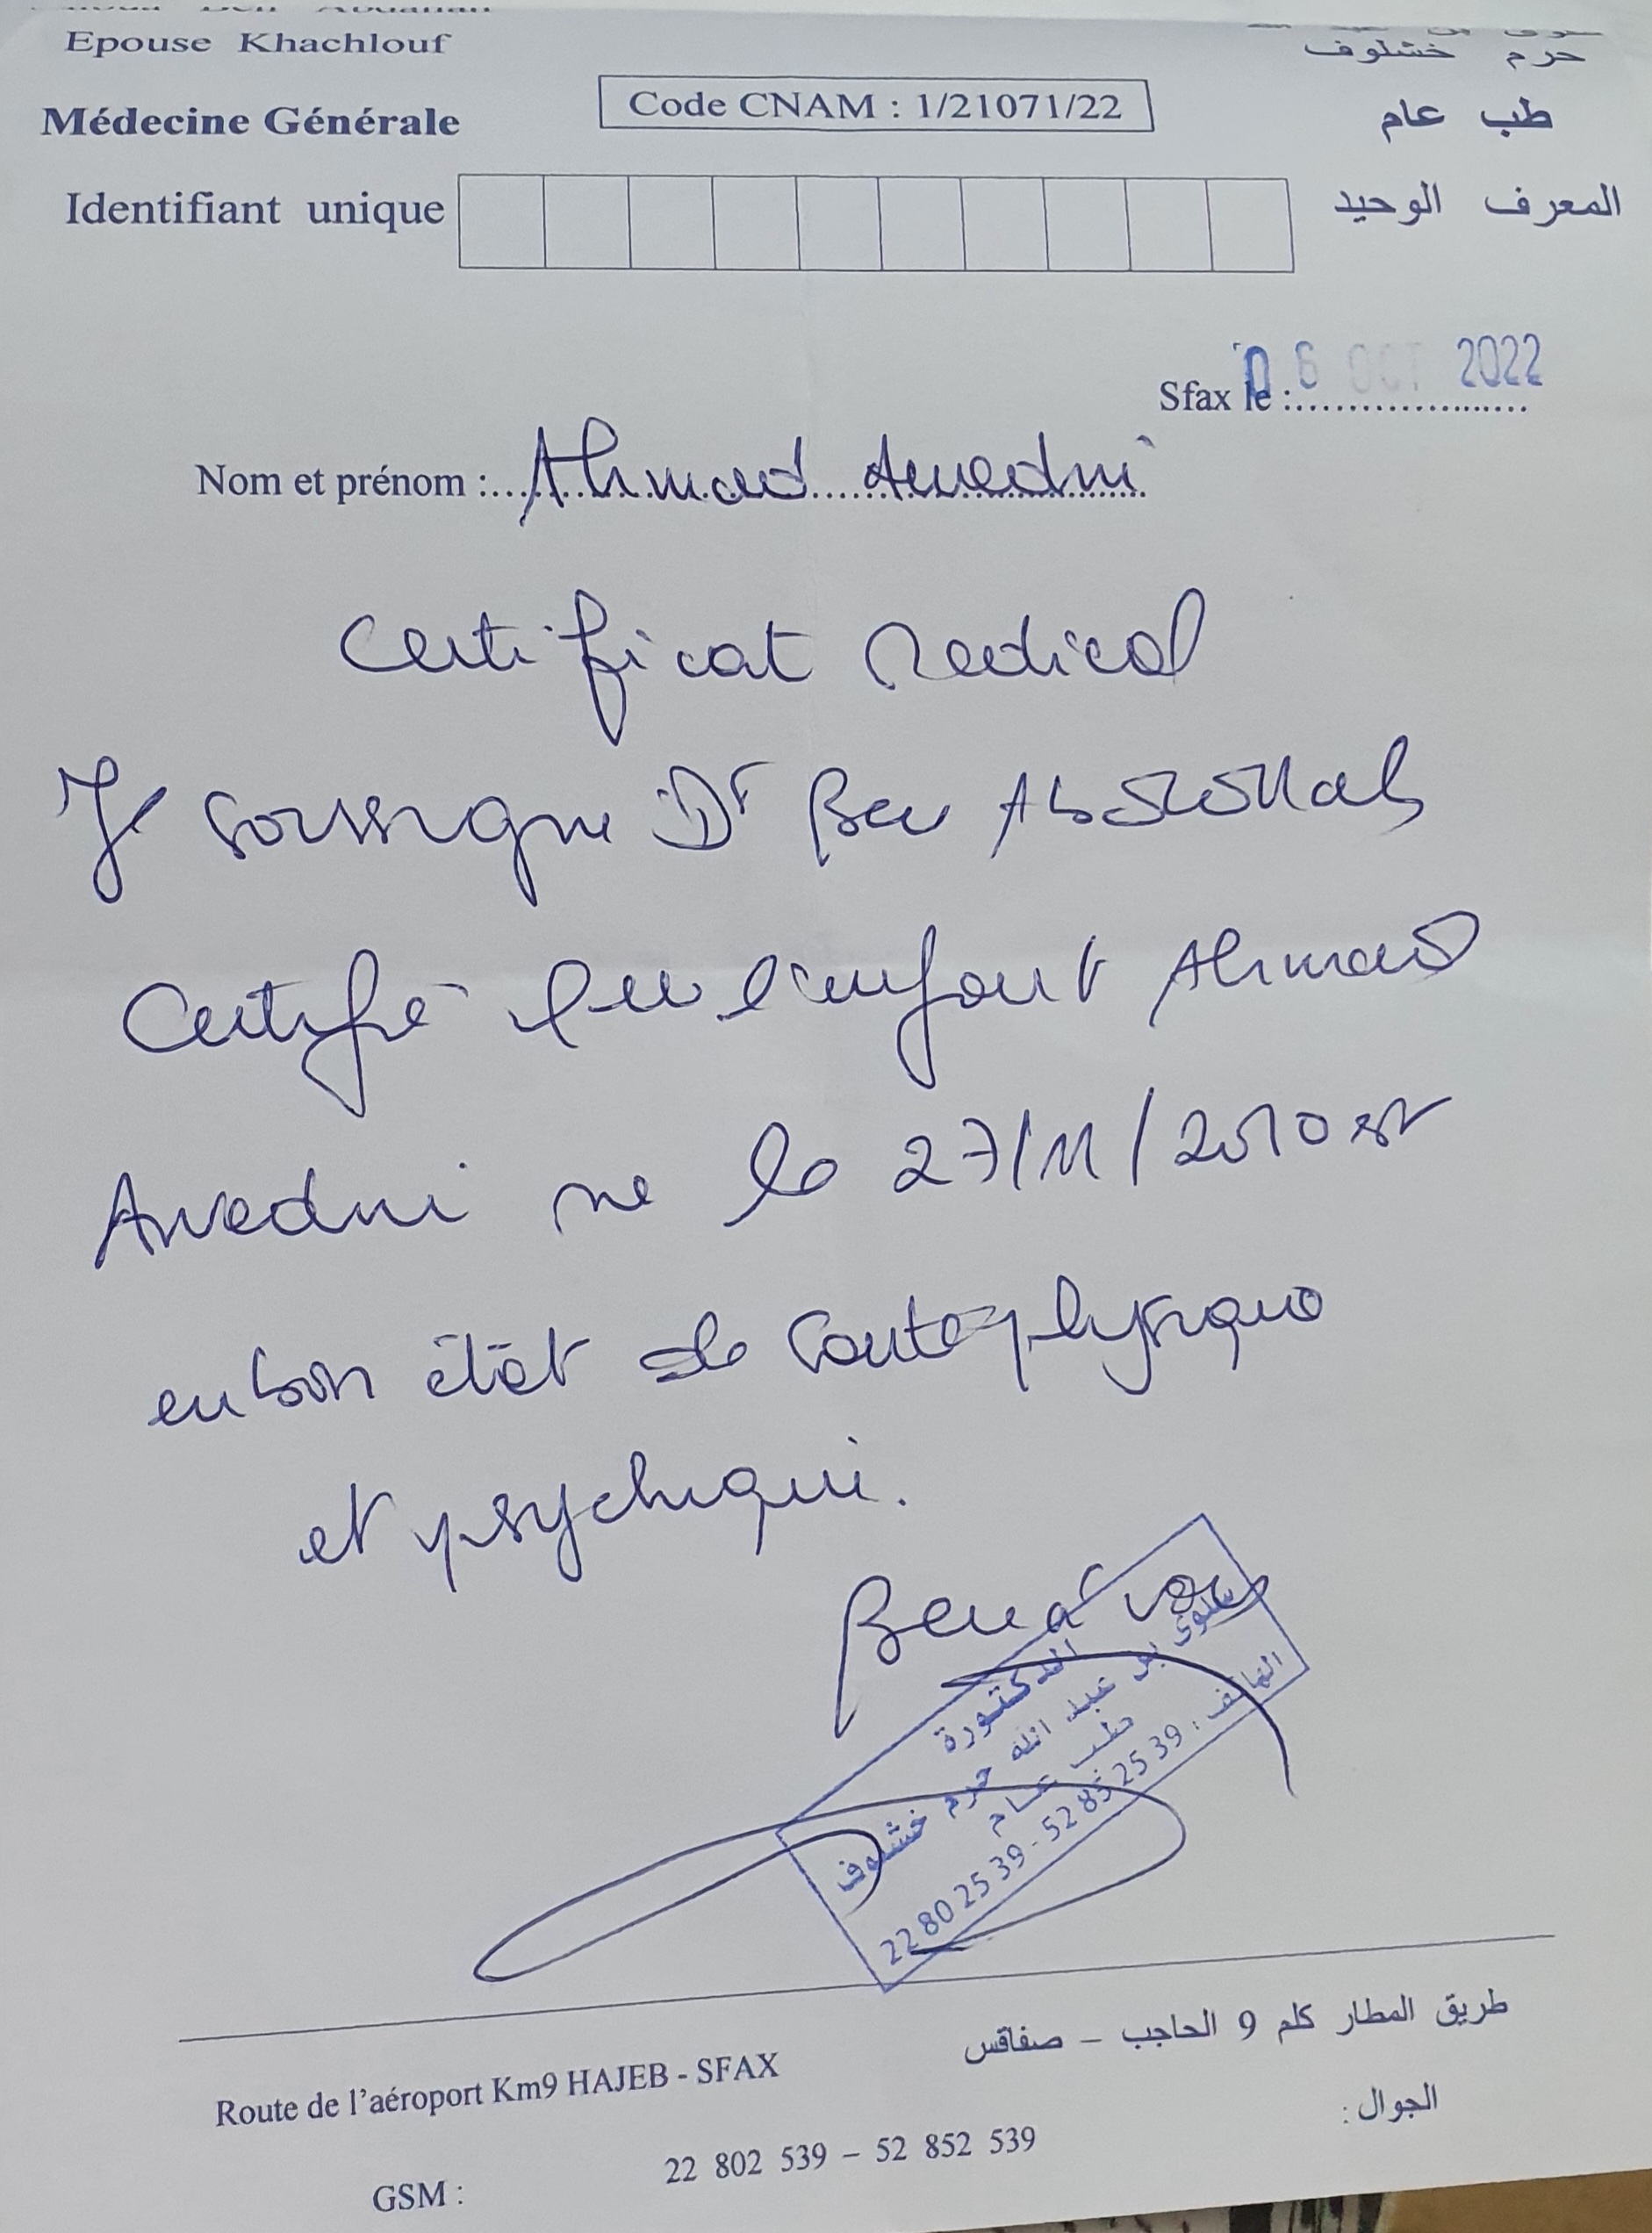 Epouse Khachlouf
حرم خشلوف
Médecine Générale
Code CNAM : 1/21071/22
طب عام
Identifiant unique
المعرف الوحيد
Sfax le : 06 OCT 2022
Nom et prénom : Ahmed Awedni
Certificat Medical
Je soussigne Dr Ben Abdallah
Certifie que l'enfant Ahmed
Awedni ne le 27/11/2010 est
en bon état de sante physique
et psychique.
الدكتورة
سلوى بن عبد الله حرم خشلوف
طب عام
الهاتف : 22 80 25 39 - 52 85 25 39
طريق المطار كلم 9 الحاجب – صفاقس
Route de l'aéroport Km9 HAJEB - SFAX
الجوال :
GSM : 22 802 539 – 52 852 539